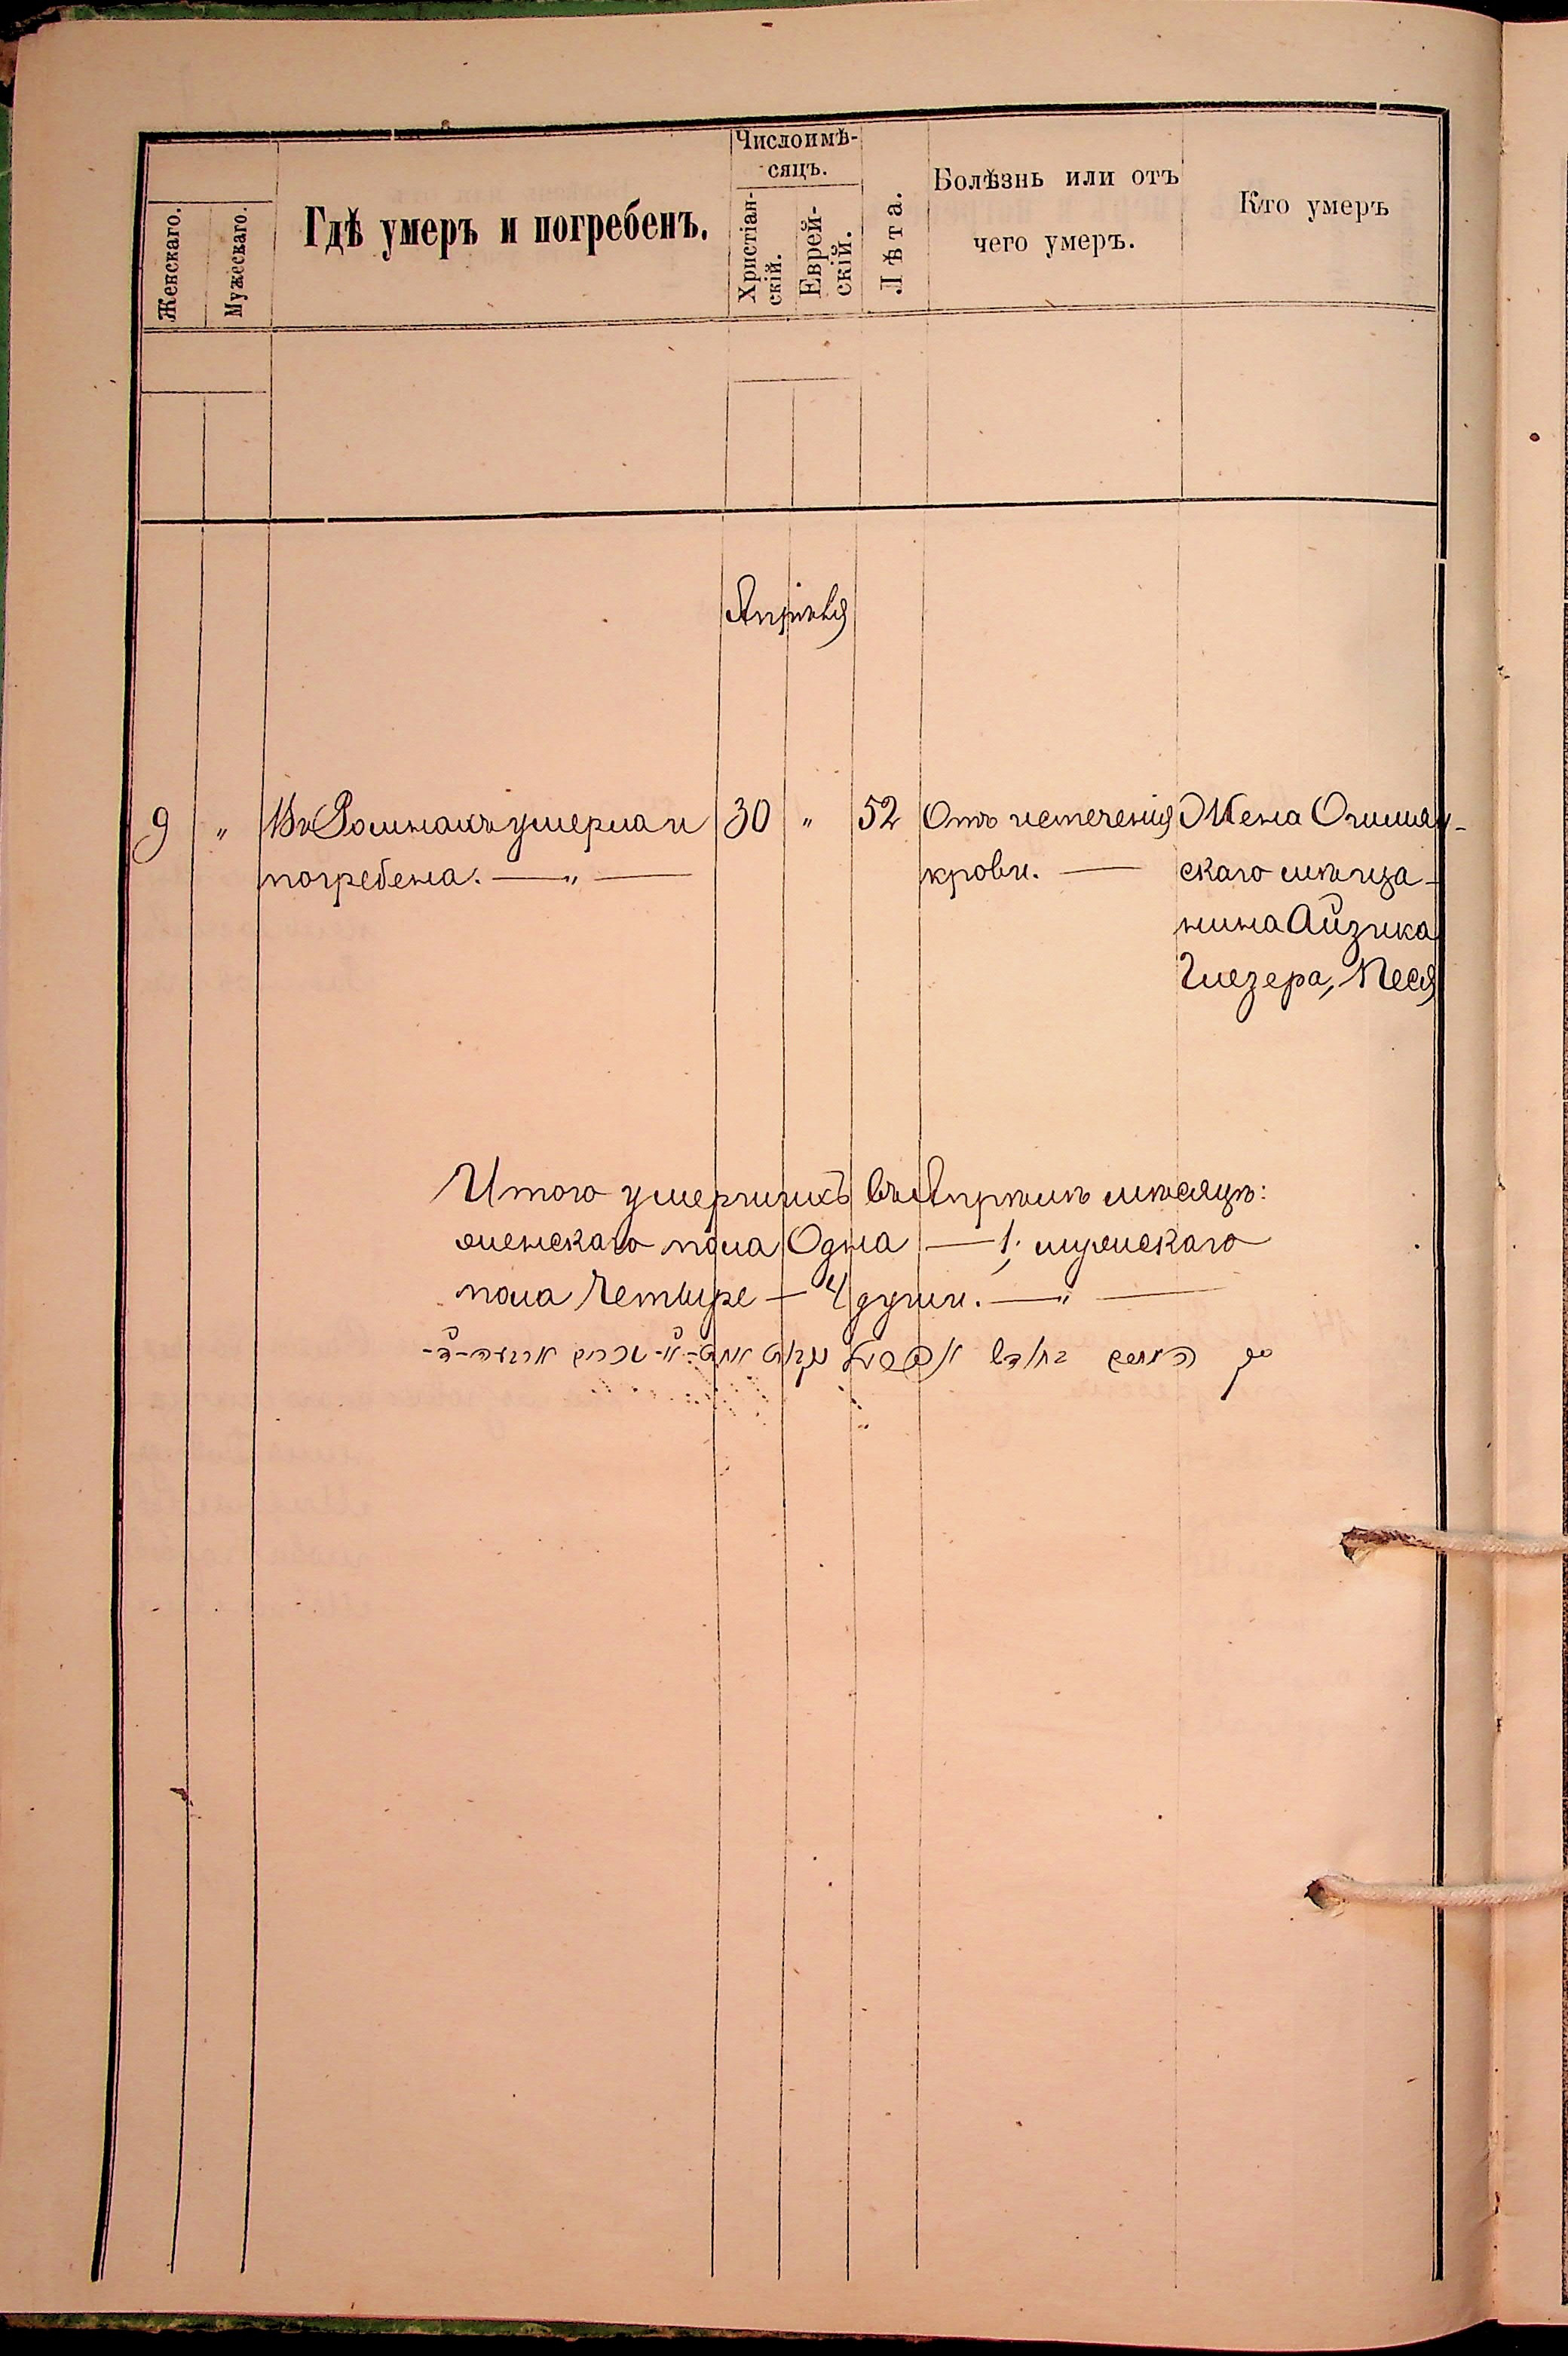 Женскаго.
Мужескаго.
Гдѣ умеръ и погребенъ.
Число и мѣ-
сяцъ.
Христіан-
скій.
Еврей-
скій.
Лѣта.
Болѣзнь или отъ
чего умеръ.
Кто умеръ
Апрѣля
9 " Въ Ромнахъ умерла и 30 " 52 Отъ истеченія Жена
погребена. — " — крови. — скаго мѣща-
нина Айзика
Глезера, Песя
Итого умершихъ въ Апрѣлѣ мѣсяцѣ:
женскаго пола Одна — 1; мужескаго
пола Четыре — 4 души. — " —